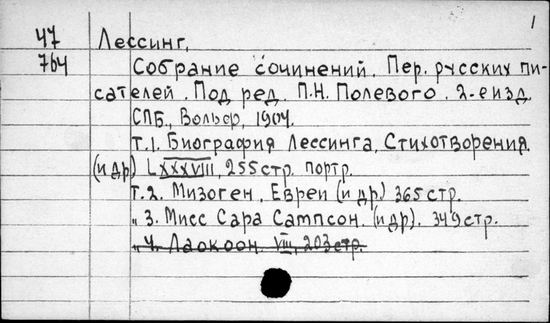 1
47 Лессинг,
764 Собрание сочинений. Пер. русских пи-
сателей. Под ред. П.Н. Полевого. 2-е изд.
СПБ., Вольф, 1904.
т.1. Биография Лессинга, Стихотворения
(и др) LXXXVIII, 255 стр. портр.
т.2. Мизоген, Евреи (и др) 365 стр.
„ 3. Мисс Сара Сампсон. (и др). 349 стр.
„ 4. Лаокоон. VIII, 203 стр.